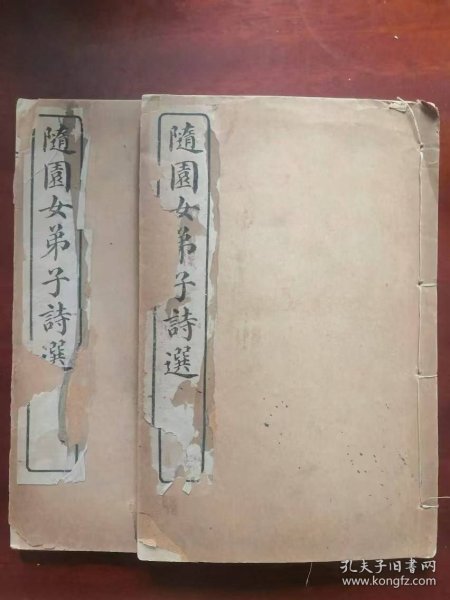 隨園女弟子詩選
隨園女弟子詩選
孔夫子旧书网
www.kongfz.com